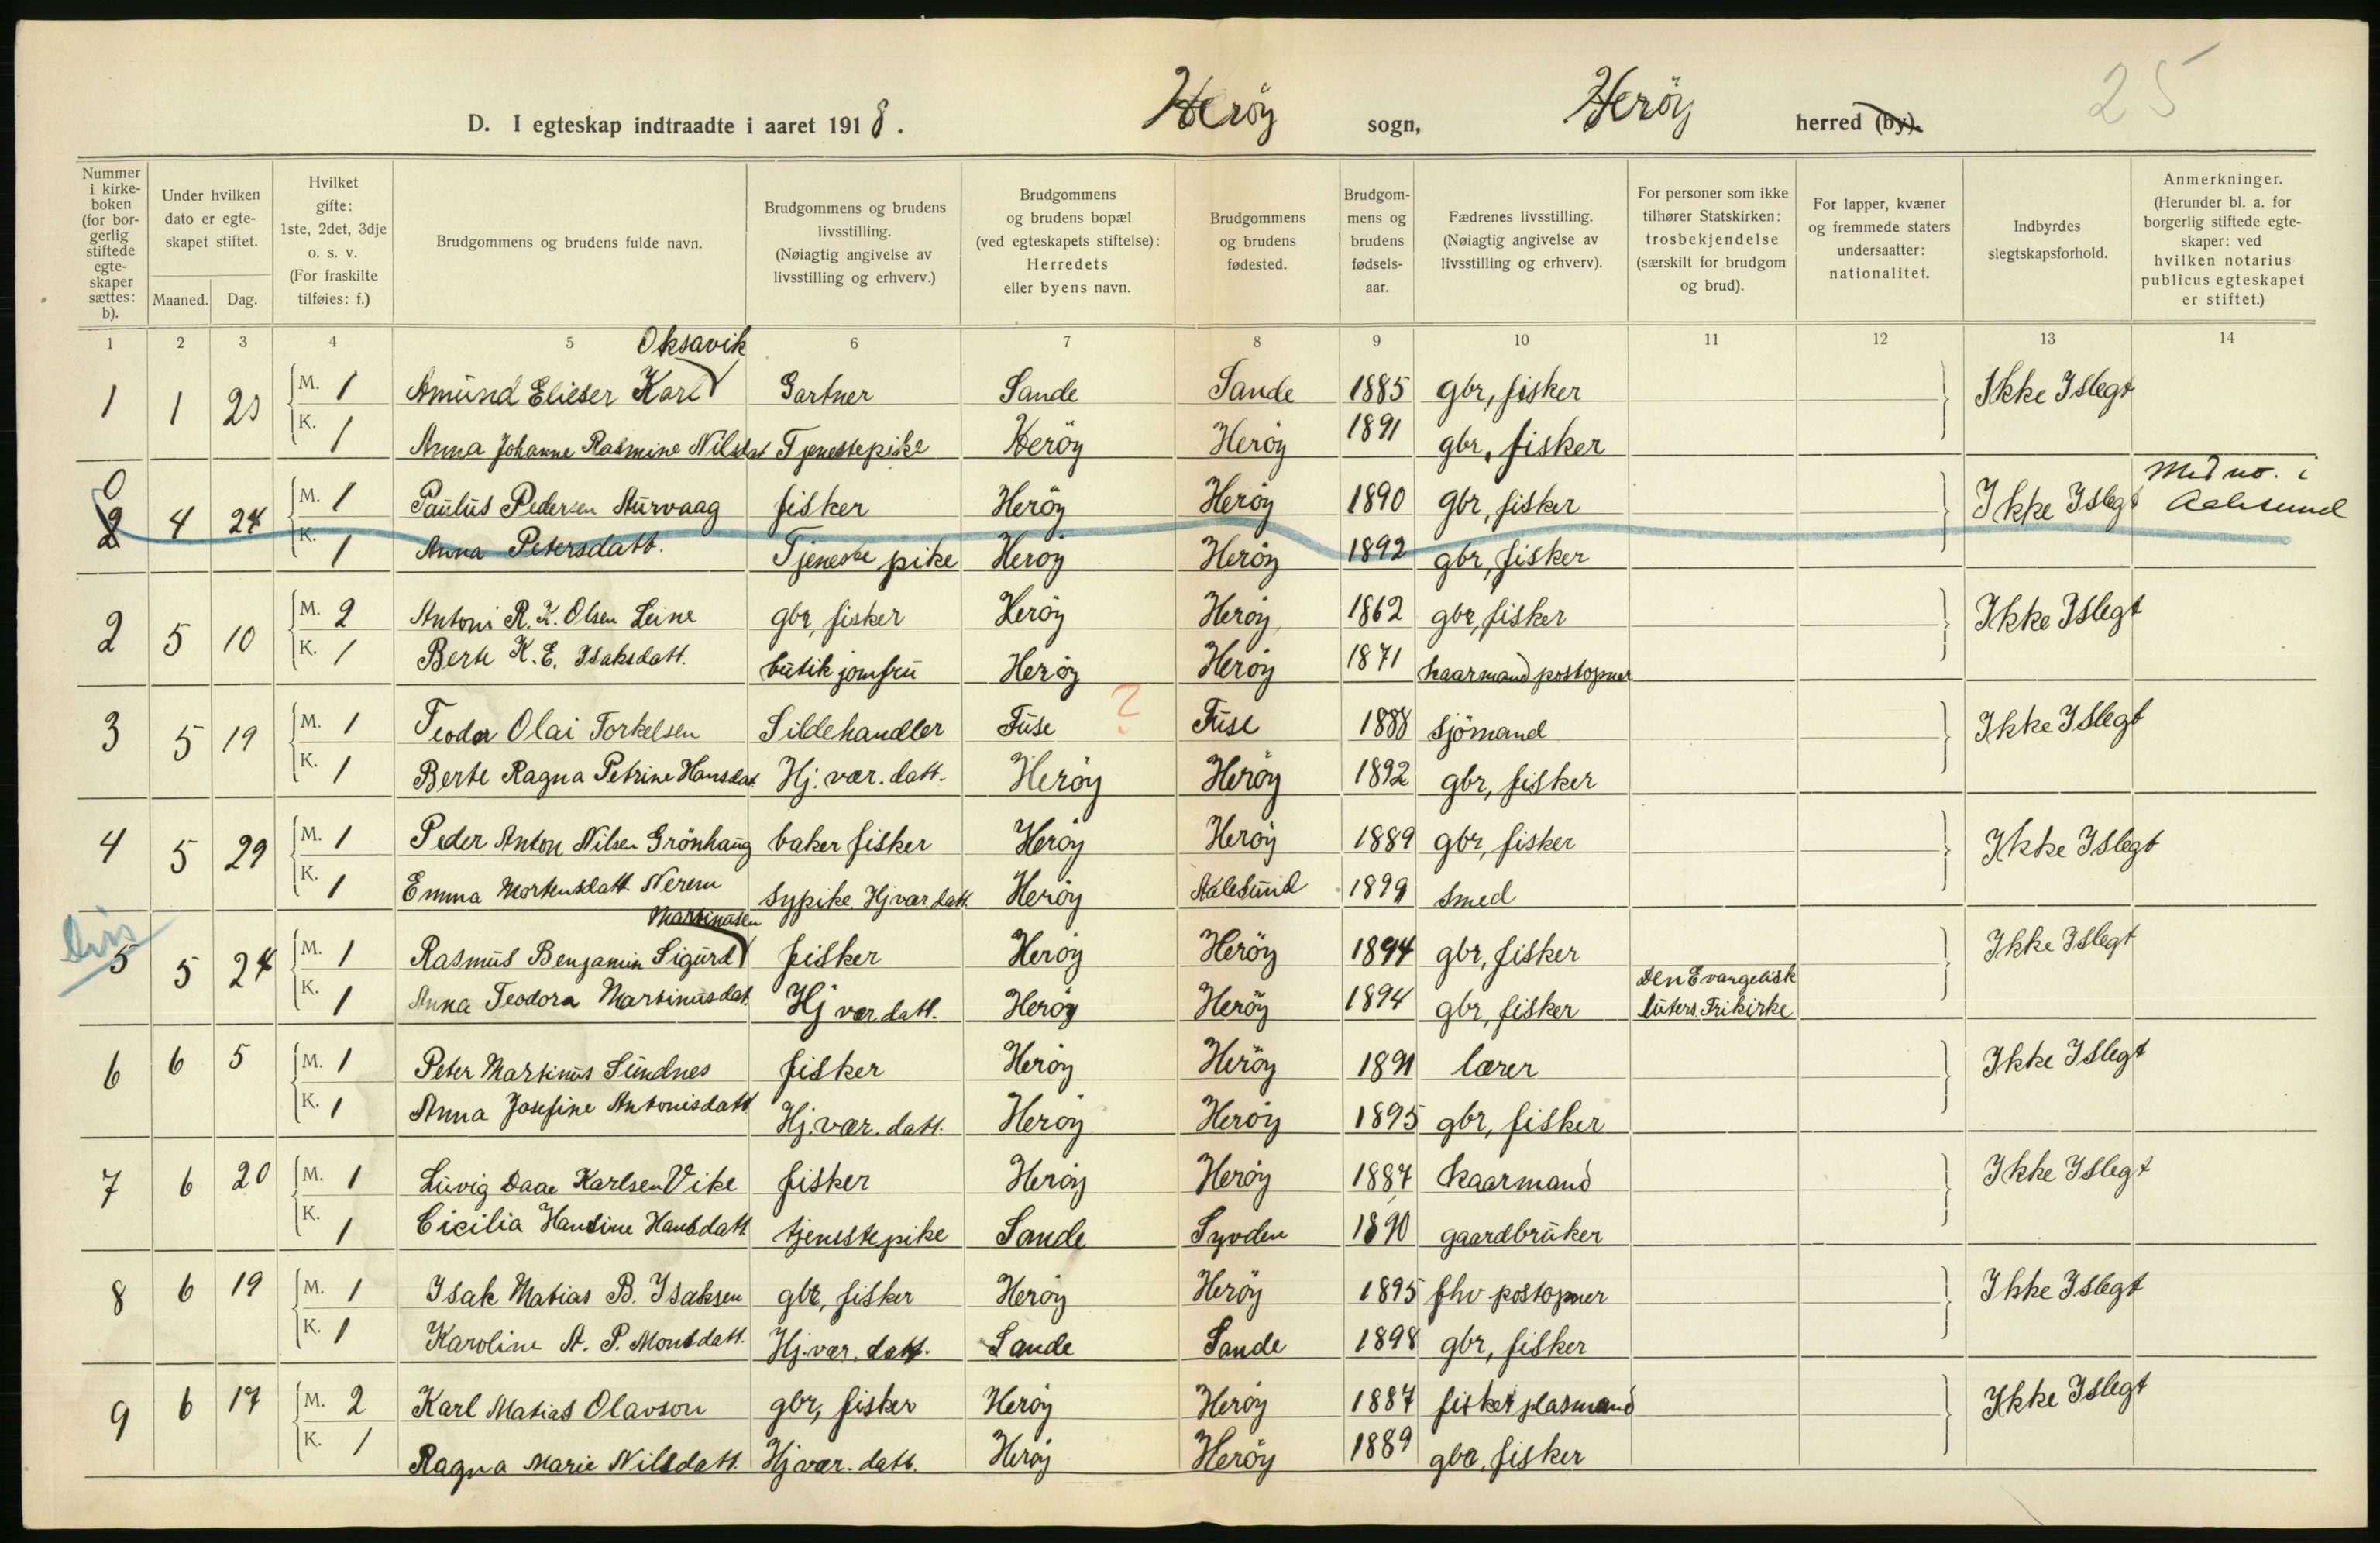 25
D. I egteskap indtraadte i aaret 1918. Heröy sogn, Heröy herred (by).
Nummer i kirkeboken (for borgerlig stiftede egteskaper sættes: b).
Under hvilken dato er egteskapet stiftet.
Maaned. Dag.
Hvilket gifte: 1ste, 2det, 3dje o. s. v. (For fraskilte tilføies: f.)
Brudgommens og brudens fulde navn.
Brudgommens og brudens livsstilling. (Nøiagtig angivelse av livsstilling og erhverv.)
Brudgommens og brudens bopæl (ved egteskapets stiftelse): Herredets eller byens navn.
Brudgommens og brudens fødested.
Brudgommens og brudens fødselsaar.
Fædrenes livsstilling. (Nøiagtig angivelse av livsstilling og erhverv).
For personer som ikke tilhører Statskirken: trosbekjendelse (særskilt for brudgom og brud).
For lapper, kvæner og fremmede staters undersaatter: nationalitet.
Indbyrdes slegtskapsforhold.
Anmerkninger. (Herunder bl. a. for borgerlig stiftede egteskaper: ved hvilken notarius publicus egteskapet er stiftet.)
1 2 3 4 5 6 7 8 9 10 11 12 13 14
Oksavik
1 1 M. 1 Amund Elieser Karl Gartner Sande Sande 1885 gbr, fisker Ikke Islegt
K. 1 Anna Johanne Rasmine Nilsdat Tjenestepike Heröy Heröy 1891 gbr, fisker
0 Med no. i
2 4 24 M. 1 Paulus Pedersen Aurvaag fisker Heröy Heröy 1890 gbr, fisker Ikke Islegt Aalesund
K. 1 Anna Petersdatt. Tjeneste pike Heröy Heröy 1892 gbr, fisker
2 5 10 M. 2 Antoni R. K. Olsen Leine gbr, fisker Heröy Heröy 1862 gbr, fisker Ikke Islegt
K. 1 Berte K. E. Isaksdatt. butik jomfru Heröy Heröy 1871 kaarmand postopner
3 5 19 M. 1 Teodor Olai Torkelsen Sildehandler Fuse ? Fuse 1888 sjömand Ikke Islegt
K. 1 Berte Ragna Petrine Hansdat. Hj. vær. datt. Heröy Heröy 1892 gbr, fisker
4 5 29 M. 1 Peder Anton Nilsen Grönhaug baker fisker Heröy Heröy 1889 gbr, fisker Ikke Islegt
K. 1 Emma Mortensdatt. Nerem sypike. Hj vær datt. Heröy Aalesund 1899 smed
Martinusen
5 5 24 M. 1 Rasmus Benjamin Sigurd fisker Heröy Heröy 1894 gbr, fisker Ikke Islegt
K. 1 Anna Teodora Martinusdat. Hj vær datt. Heröy Heröy 1894 gbr, fisker Den Evangelisk luters. Frikirke
6 6 5 M. 1 Peter Martinus Sundnes fisker Heröy Heröy 1891 lærer Ikke Islegt
K. 1 Anna Josefine Antonisdatt Hj. vær. datt. Heröy Heröy 1895 gbr, fisker
7 6 20 M. 1 Luvig Daae Karlsen Vike fisker Heröy Heröy 1887 kaarmand Ikke Islegt
K. 1 Cicilia Hansine Hansdatt. tjenestepike Sande Syvden 1890 gaardbruker
8 6 19 M. 1 Isak Matias B. Isaksen gbr, fisker Heröy Heröy 1895 fhv postopner Ikke Islegt
K. 1 Karoline A. P. Monsdatt. Hj. vær. datt. Sande Sande 1898 gbr, fisker
9 6 17 M. 2 Karl Matias Olavson gbr, fisker Heröy Heröy 1887 fisker plasmand Ikke Islegt
K. 1 Ragna Marie Nilsdatt. Hj vær. datt. Heröy Heröy 1889 gbr, fisker